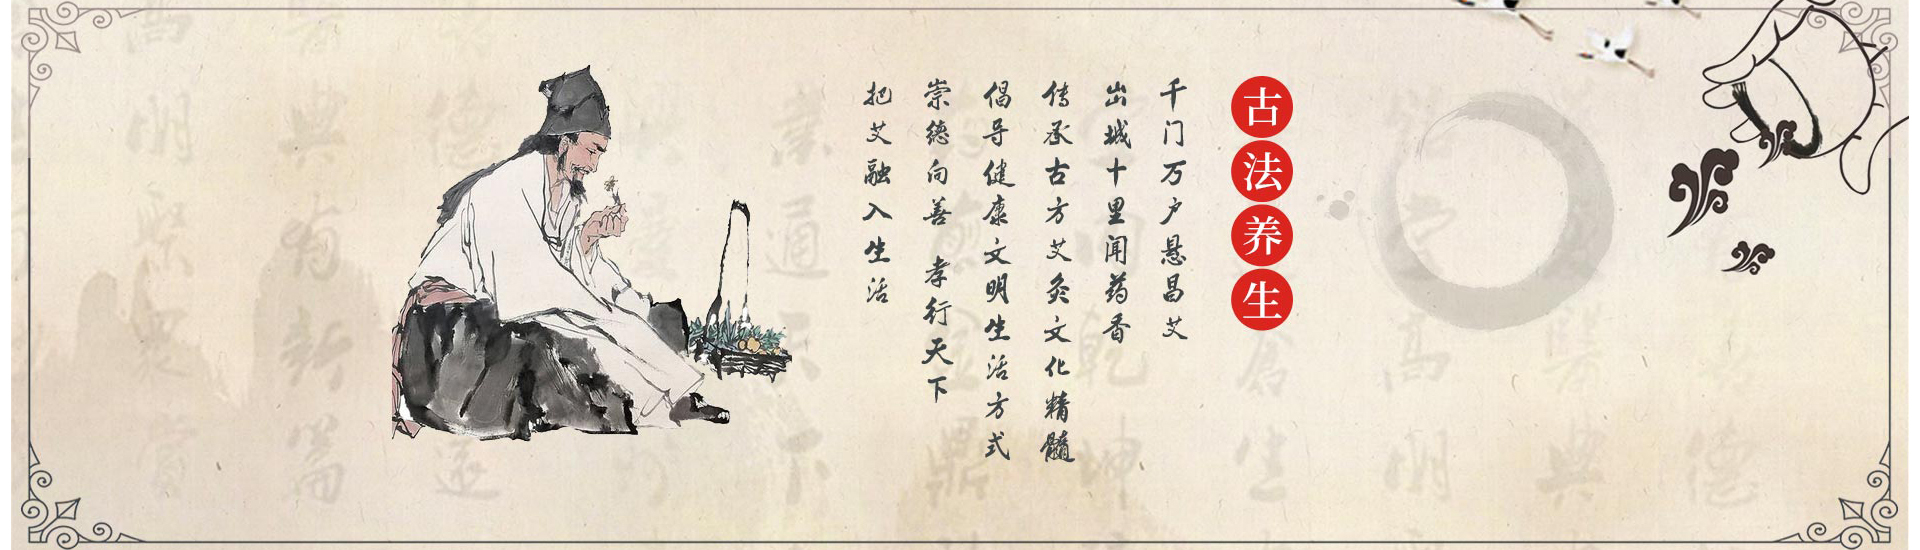 古法养生
千门万户悬昌艾
出城十里闻药香
传承古方艾灸文化精髓
倡导健康文明生活方式
崇德向善 孝行天下
把艾融入生活